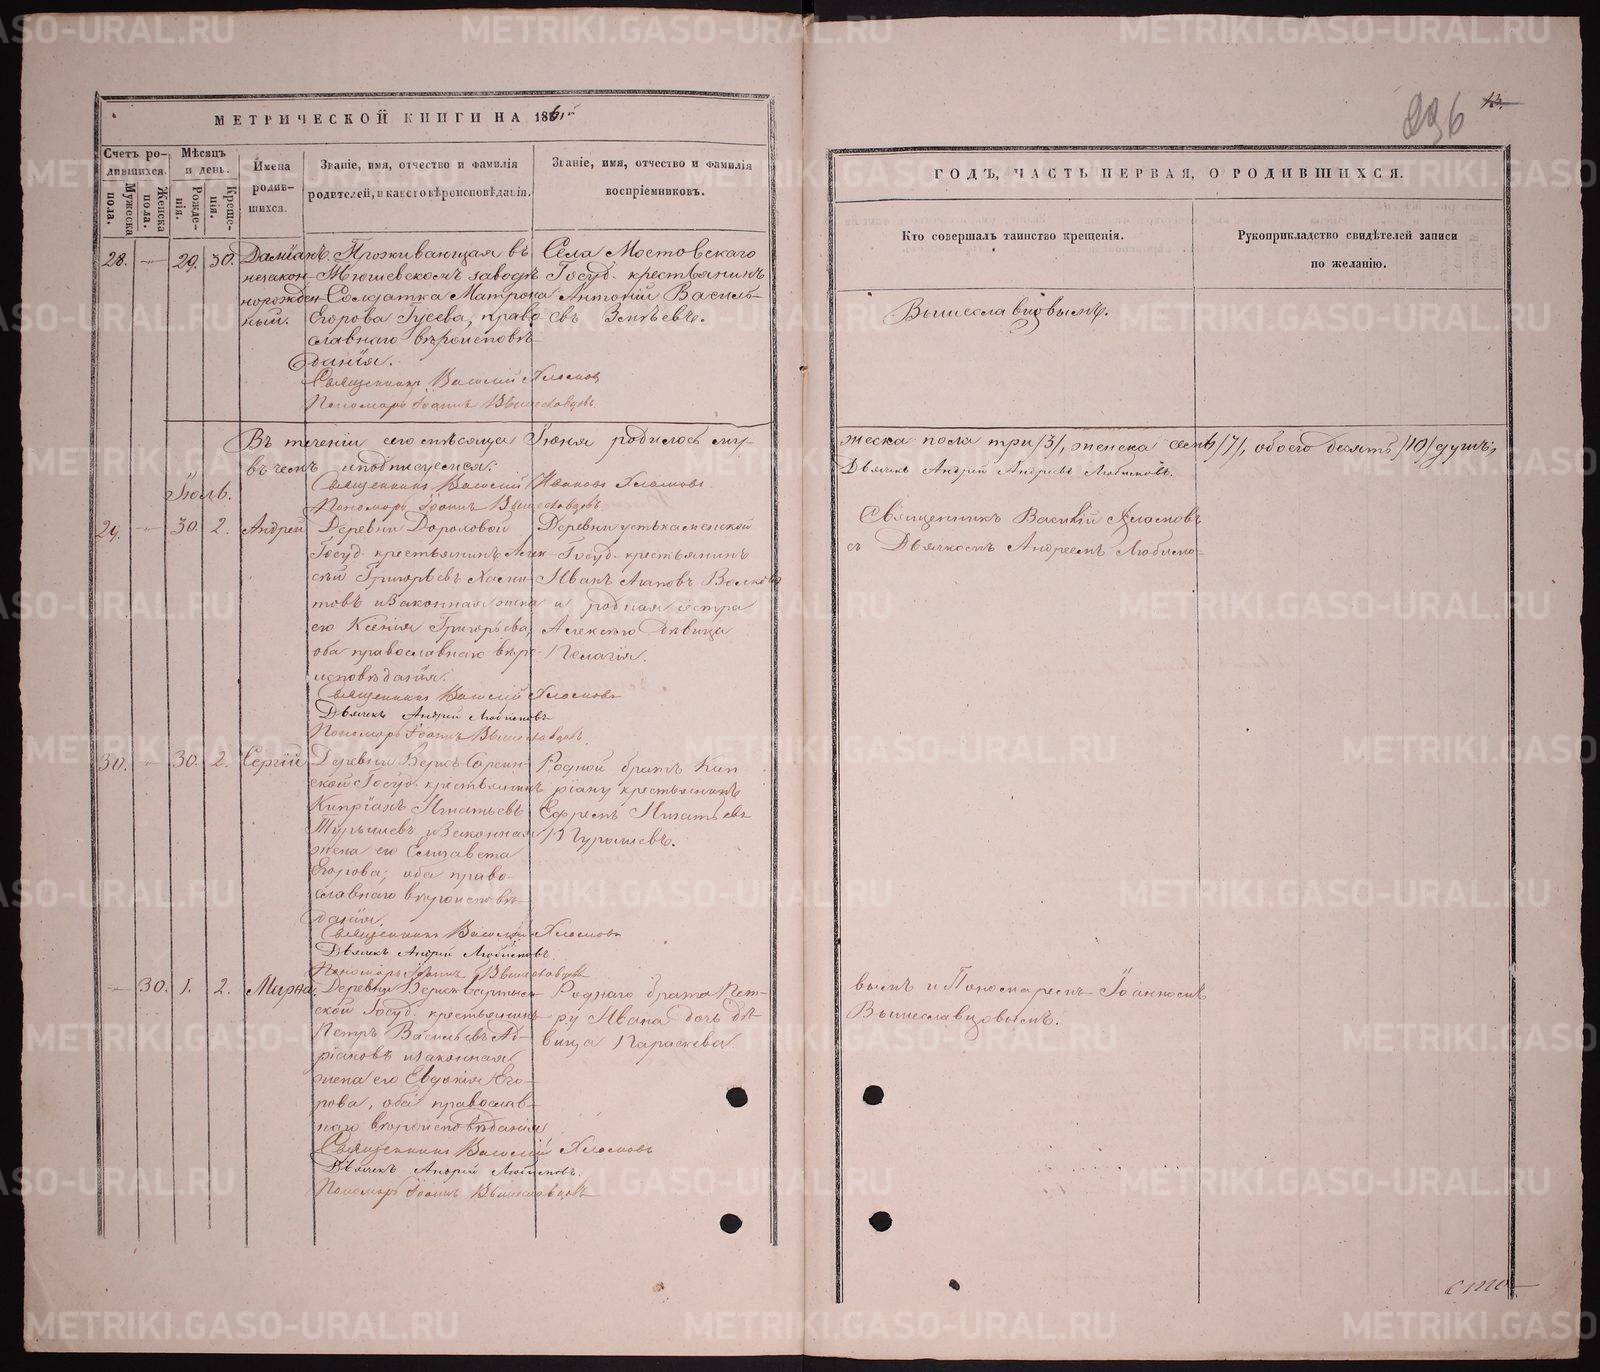 МЕТРИЧЕСКОЙ КНИГИ НА 1861й
Счетъ ро-
дившихся.
Мужеска
пола.
Женска
пола.
Мѣсяцъ
и день.
Рожде-
нія.
Креще-
нія.
Имена
родив-
шихся.
Званіе, имя, отчество и фамилія
родителей, и какого вѣроисповѣданія.
Званіе, имя, отчество и фамилія
воспріемниковъ.
28. — 29. 30.
Даміанъ
незакон-
норожден-
ный.
Проживающая въ
заводѣ
Солдатка Матрона
Егорова Гусева, право-
славнаго вѣроисповѣ-
данія.
Священникъ Василій
Пономарь Іоаннъ Вышеславцовъ
Села Мостовскаго
Госуд. крестьянинъ
Антоній Василь-
евъ Змѣевъ.
Въ теченіи сего мѣсяца Іюня родилось му-
въ чемъ и подписуемся:
Священникъ Василій Ивановъ
Пономарь Іоаннъ Вышеславцовъ.
Іюль.
29. — 30. 2. Андрей
Деревни
Госуд. крестьянинъ Алек-
сѣй Григорьевъ
товъ и законная жена
его Ксенія Григорьева,
оба православнаго вѣро-
исповѣданія.
Священникъ Василій
Дьячекъ Андрей Любимовъ
Пономарь Іоаннъ Вышеславцовъ.
Деревни
Госуд. крестьянинъ
Иванъ
и родная сестра
Алексѣю дѣвица
Пелагія.
30. — 30. 2. Сергій
Деревни Верхъ
ской Госуд. крестьянинъ
Кипріанъ Игнатьевъ
и законная
жена его Елизавета
Егорова; оба право-
славнаго вѣроисповѣ-
данія.
Священникъ Василій
Дьячекъ Андрей Любимовъ.
Пономарь Іоаннъ Вышеславцовъ
Родной братъ Кип-
ріану крестьянинъ
Ефремъ Игнатьевъ
— 30. 1. 2.
Деревни Верхъ
ской Госуд. крестьянинъ
Петръ Васильевъ Ад-
ріановъ и законная
жена его Евдокія Его-
рова, оба православ-
наго вѣроисповѣданія
Священникъ Василій
Дьячекъ Андрей Любимовъ.
Пономарь Іоаннъ Вышеславцовъ
Роднаго брата Пет-
ру Ивана дочь дѣ-
вица Параскева.
236 13.
ГОДЪ, ЧАСТЬ ПЕРВАЯ, О РОДИВШИХСЯ.
Кто совершалъ таинство крещенія.
Рукоприкладство свидѣтелей записи
по желанію.
Вышеславцовымъ.
жеска пола три /3/, женска семь /7/, обоего десять /10/ душъ,
Дьячекъ Андрей Андреевъ Любимовъ.
Священникъ Василій
съ Дьячкомъ Андреемъ Любимо-
вымъ и Пономаремъ Іоанномъ
Вышеславцовымъ.
METRIKI.GASO-URAL.RU